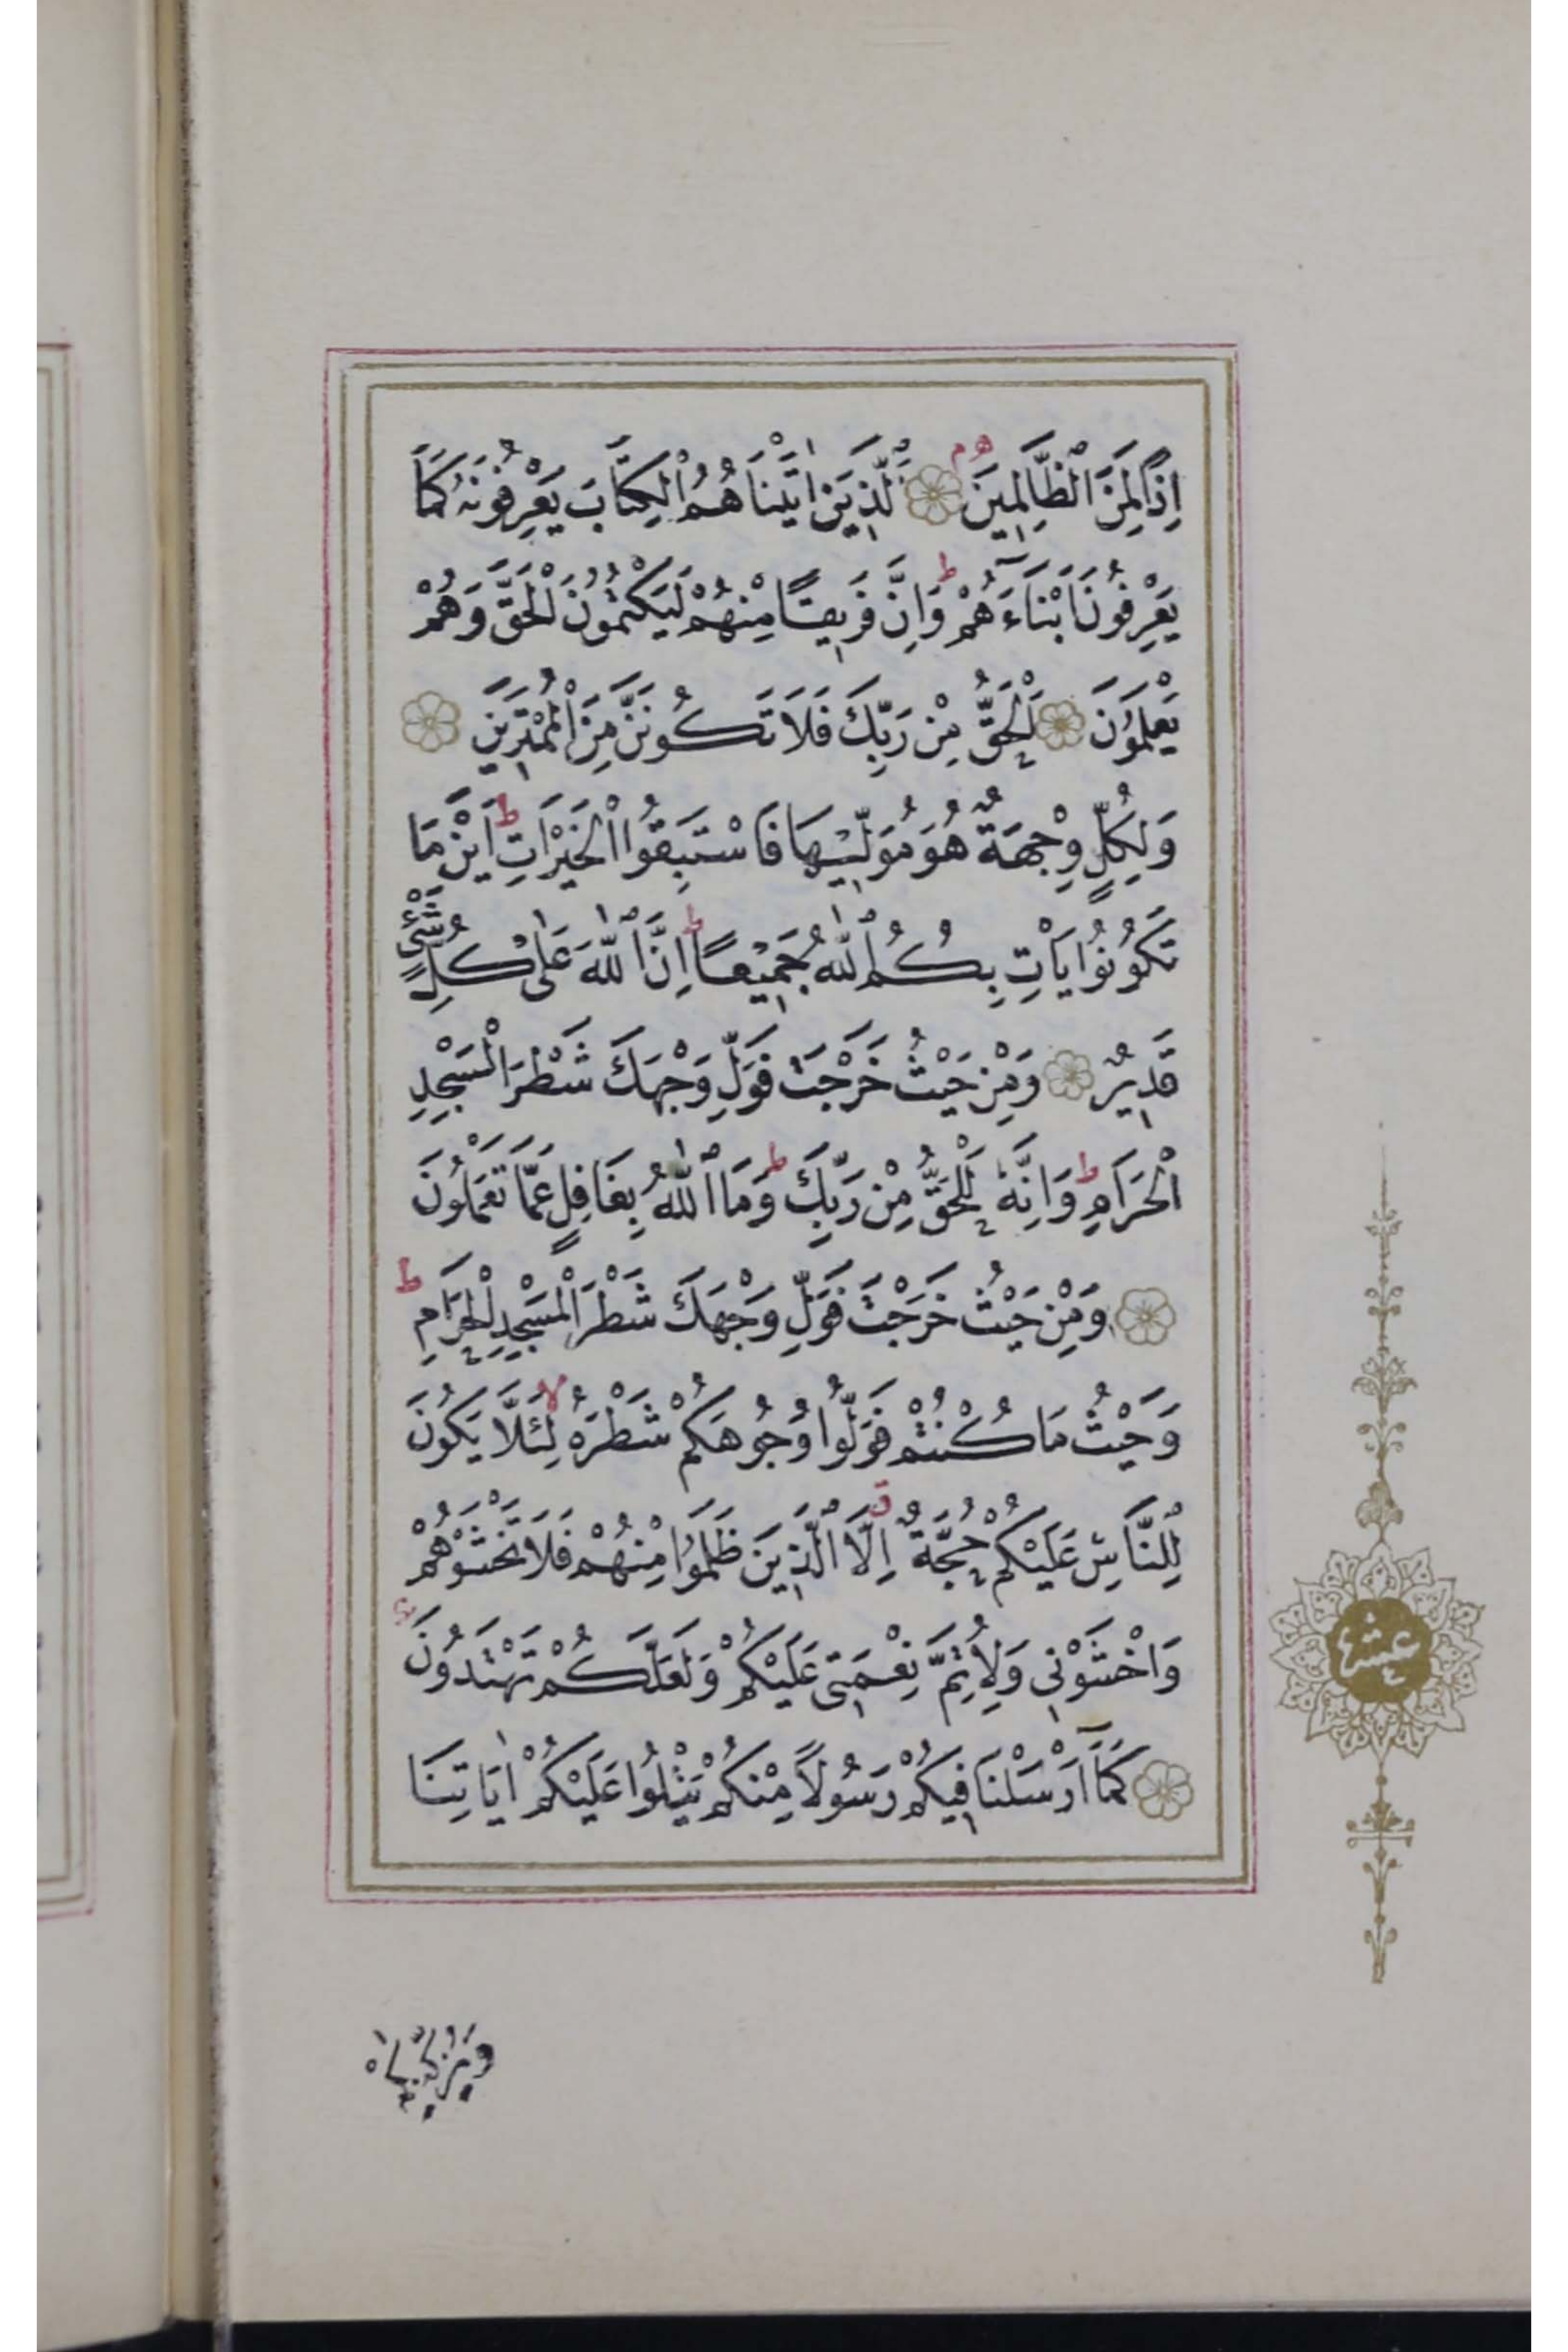 اِذًا لَمِنَ الظَّالِمِينَ ۘ اَلَّذِينَ اٰتَيْنَاهُمُ الْكِتَابَ يَعْرِفُونَهُ كَمَا
يَعْرِفُونَ اَبْنَٓاءَهُمْ ط وَاِنَّ فَرِيقًا مِنْهُمْ لَيَكْتُمُونَ الْحَقَّ وَهُمْ
يَعْلَمُونَ اَلْحَقُّ مِنْ رَبِّكَ فَلَا تَكُونَنَّ مِنَ الْمُمْتَرِينَ
وَلِكُلٍّ وِجْهَةٌ هُوَ مُوَلِّيهَا فَاسْتَبِقُوا الْخَيْرَاتِ ط اَيْنَ مَا
تَكُونُوا يَأْتِ بِكُمُ اللّٰهُ جَمِيعًا ط اِنَّ اللّٰهَ عَلٰى كُلِّ شَيْءٍ
قَدِيرٌ وَمِنْ حَيْثُ خَرَجْتَ فَوَلِّ وَجْهَكَ شَطْرَ الْمَسْجِدِ
الْحَرَامِ ط وَاِنَّهُ لَلْحَقُّ مِنْ رَبِّكَ ط وَمَا اللّٰهُ بِغَافِلٍ عَمَّا تَعْمَلُونَ
وَمِنْ حَيْثُ خَرَجْتَ فَوَلِّ وَجْهَكَ شَطْرَ الْمَسْجِدِ الْحَرَامِ ط
وَحَيْثُ مَا كُنْتُمْ فَوَلُّوا وُجُوهَكُمْ شَطْرَهُ لا لِئَلَّا يَكُونَ
لِلنَّاسِ عَلَيْكُمْ حُجَّةٌ ق اِلَّا الَّذِينَ ظَلَمُوا مِنْهُمْ فَلَا تَخْشَوْهُمْ
وَاخْشَوْنِي وَلِاُتِمَّ نِعْمَتِي عَلَيْكُمْ وَلَعَلَّكُمْ تَهْتَدُونَ
كَمَٓا اَرْسَلْنَا فِيكُمْ رَسُولًا مِنْكُمْ يَتْلُوا عَلَيْكُمْ اٰيَاتِنَا
عشر
وَيُزَكِّيكُمْ